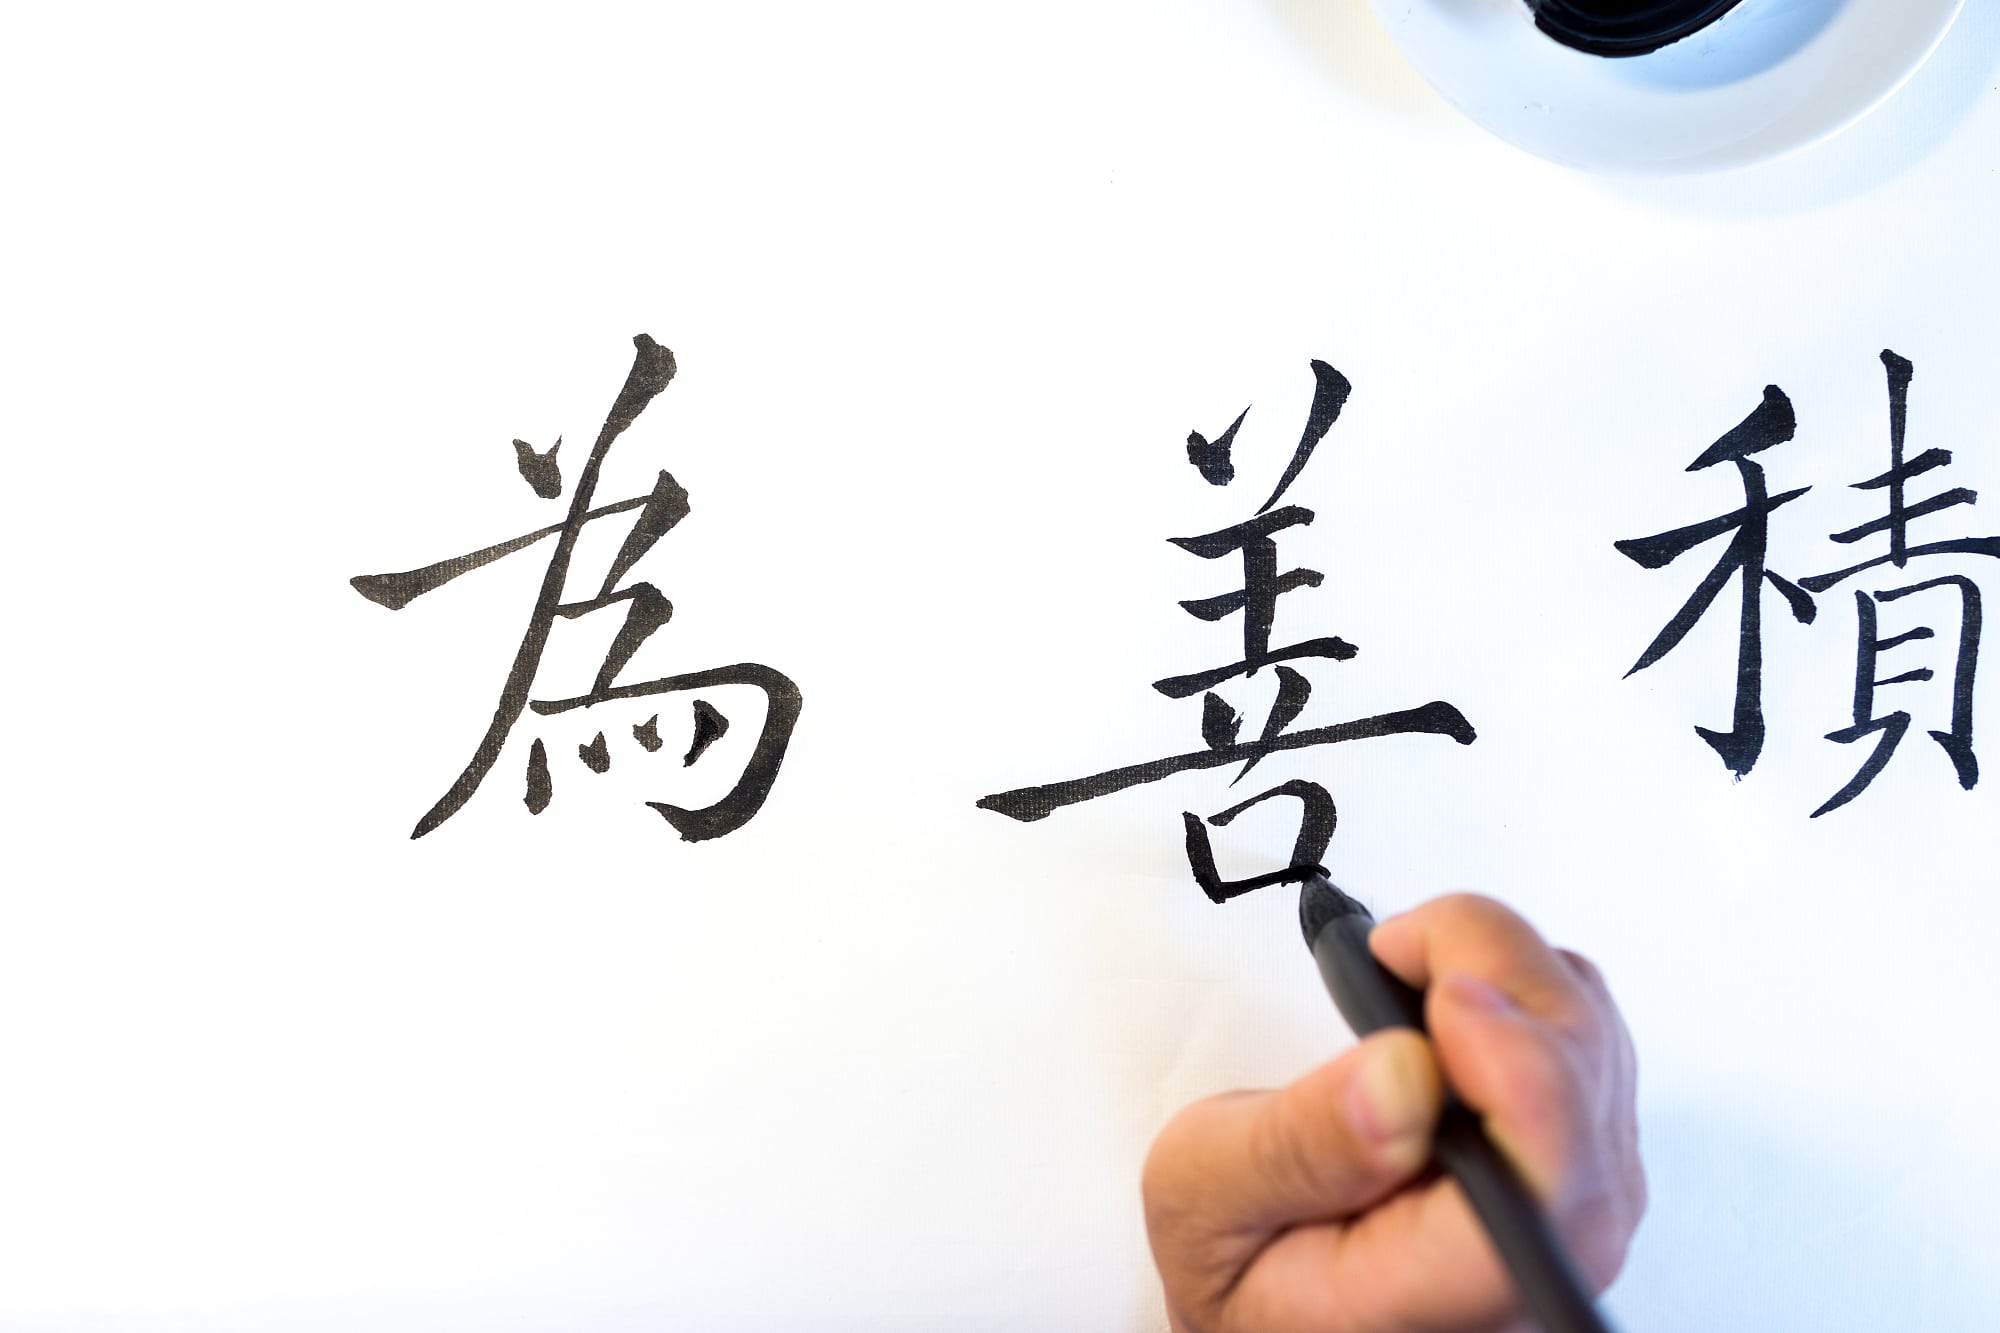 為善積